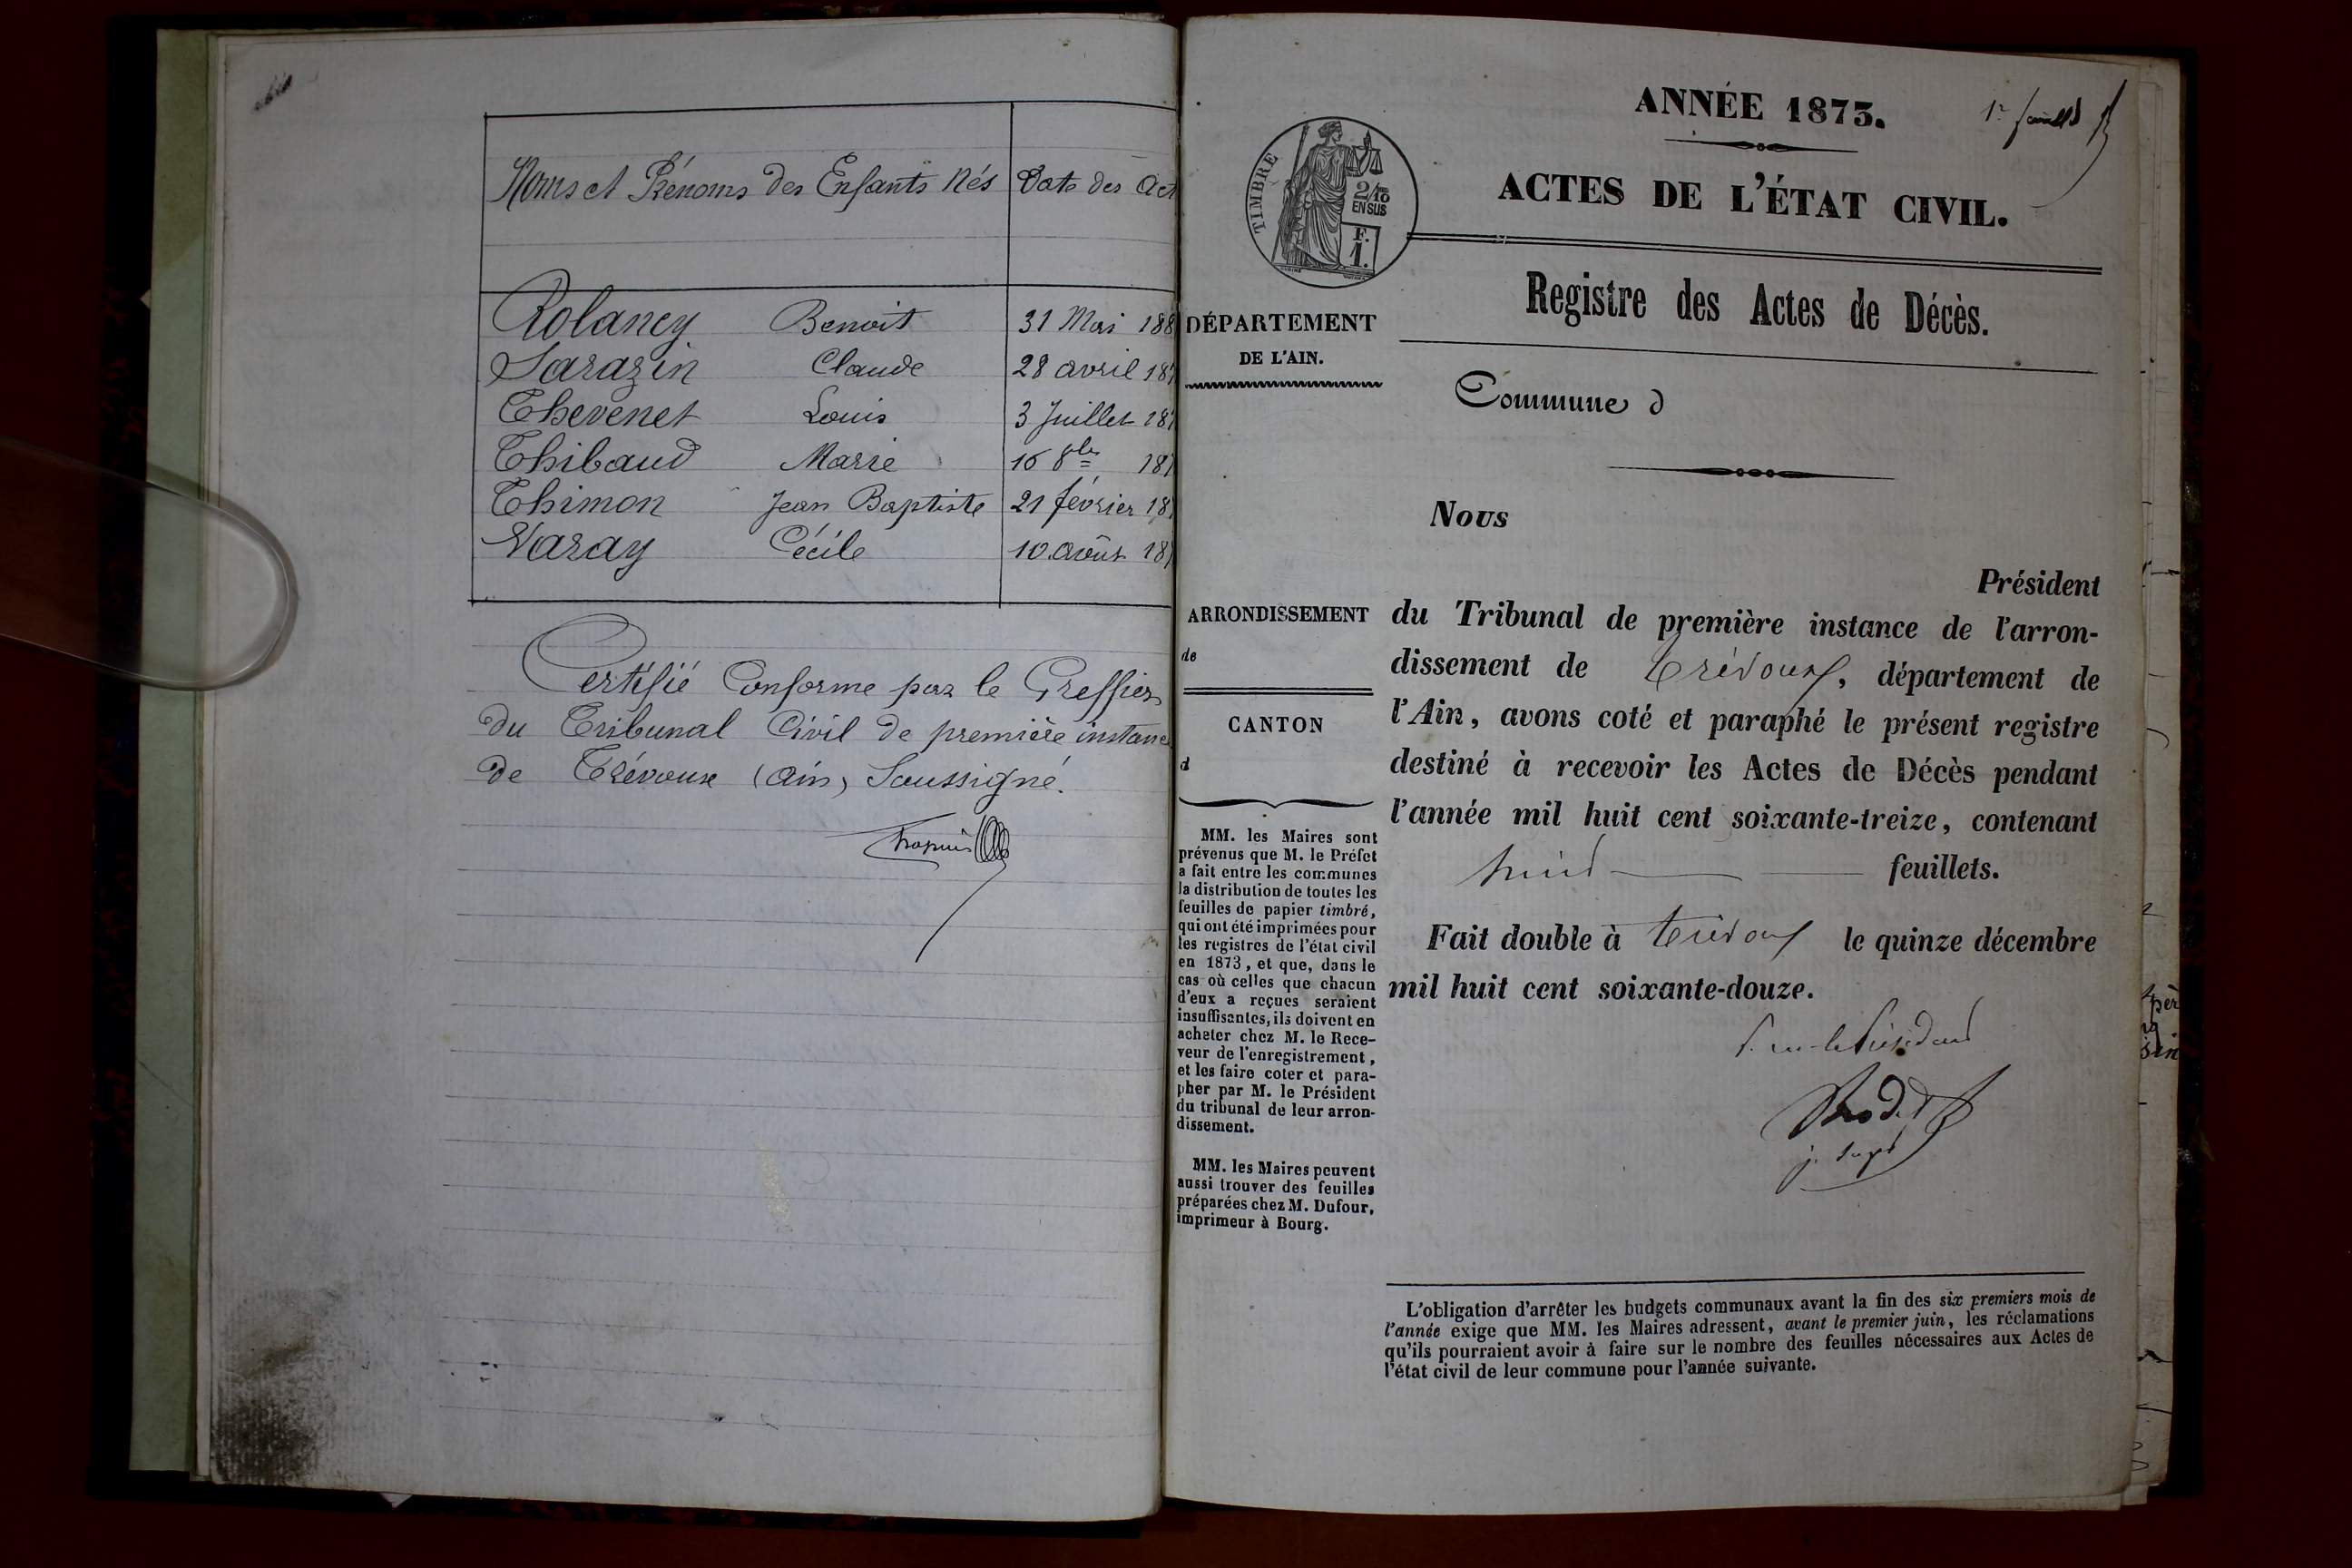 Noms et Prénoms des Enfants Nés Date des Act
Rolancy Benoit 31 Mai 188
Sarazin Claude 28 avril 187
Thevenet Louis 3 Juillet 187
Thibaud Marie 16 8bre 187
Thimon Jean Baptiste 21 février 187
Varay Cécile 10 août 187
Certifié Conforme par le Greffier
du Tribunal Civil de première instance
de Trévoux (Ain) Soussigné.
ANNÉE 1873.
1er feuillet
ACTES DE L'ÉTAT CIVIL.
TIMBRE
2/10 EN SUS
F. 1.
Registre des Actes de Décès.
DÉPARTEMENT
DE L'AIN.
Commune d
Nous
Président
ARRONDISSEMENT
de
CANTON
d
du Tribunal de première instance de l'arron-
dissement de Trévoux, département de
l'Ain, avons coté et paraphé le présent registre
destiné à recevoir les Actes de Décès pendant
l'année mil huit cent soixante-treize, contenant
huit feuillets.
Fait double à Trévoux le quinze décembre
mil huit cent soixante-douze.
MM. les Maires sont
prévenus que M. le Préfet
a fait entre les communes
la distribution de toutes les
feuilles de papier timbré,
qui ont été imprimées pour
les registres de l'état civil
en 1873, et que, dans le
cas où celles que chacun
d'eux a reçues seraient
insuffisantes, ils doivent en
acheter chez M. le Rece-
veur de l'enregistrement,
et les faire coter et para-
pher par M. le Président
du tribunal de leur arron-
dissement.
MM. les Maires peuvent
aussi trouver des feuilles
préparées chez M. Dufour,
imprimeur à Bourg.
L'obligation d'arrêter les budgets communaux avant la fin des six premiers mois de
l'année exige que MM. les Maires adressent, avant le premier juin, les réclamations
qu'ils pourraient avoir à faire sur le nombre des feuilles nécessaires aux Actes de
l'état civil de leur commune pour l'année suivante.